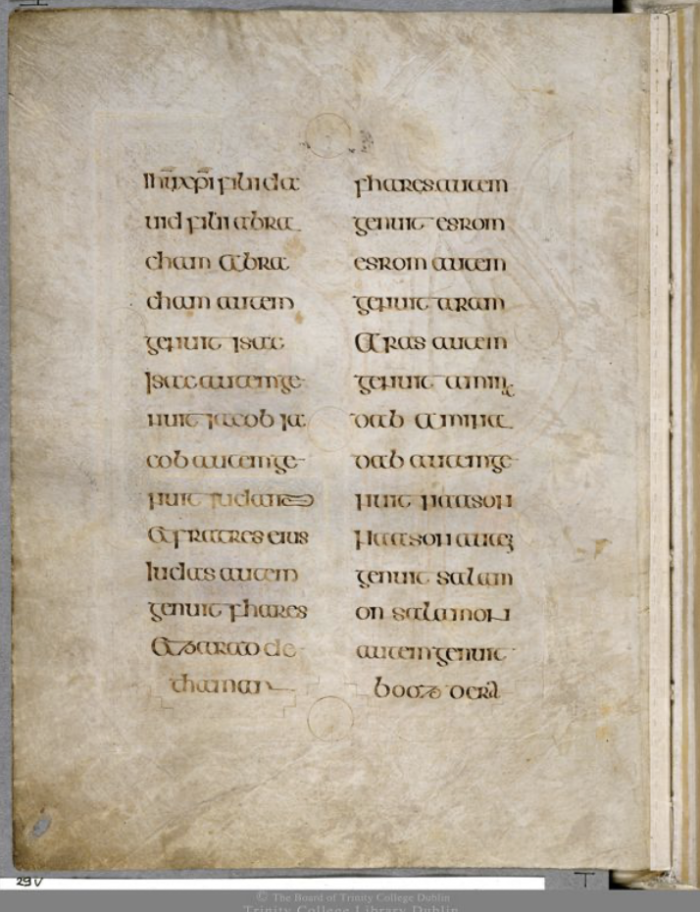 ihũ xp̄i filii da
uid filii abra
cham Abra
cham autem
genuit isac
Isac autem ge
nuit iacob ia
cob autem ge
nuit iudam
& fratres eius
Iudas autem
genuit fhares
& zarad de
thamar
fhares autem
genuit esrom
esrom autem
genuit aram
Aras autem
genuit amin
dab amina
dab autem ge
nuit naason
Naason autē
genuit salam
on salamon
autem genuit
booz de
29v
© The Board of Trinity College Dublin
Trinity College Library Dublin